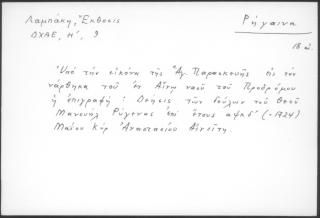 Λαμπάκη, Ἔκθεσις
ΔΧΑΕ, Η΄, 9
Ρήγαινα
18 αἰ.
Ὑπό τήν εἰκόνα τῆς Ἁγ. Παρασκευῆς εἰς τόν
νάρθηκα τοῦ ἐν Αἴνῳ ναοῦ τοῦ Προδρόμου
ἡ ἐπιγραφή: Δέησις τῶν δούλων τοῦ Θεοῦ
Μανουήλ Ρύγενας ἐπί ἔτους αψκδ΄ (=1724)
Μαΐου Κύρ Ἀναστασίου Αἰνείτη.